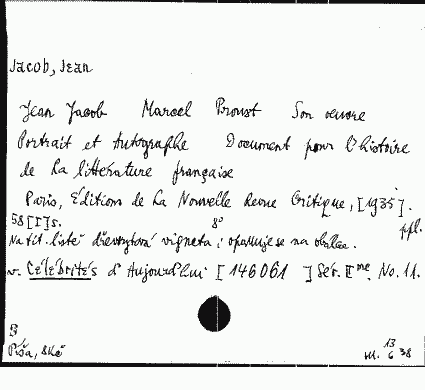 Jacob, Jean
Jean Jacob Marcel Proust Son oeuvre
Portrait et Autographe Document pour l'histoire
de la littérature française
Paris, Éditions de La Nouvelle Revue Critique, [1935].
58 [I] s. 8° ppl.
Na tit. listě dřevorytová vigneta; opakuje se na obálce.
v. Célébrités d'Aujourd'hui [146061 ] Sér. IIme, No. 11.
Píša, 8Kč
13
6 38